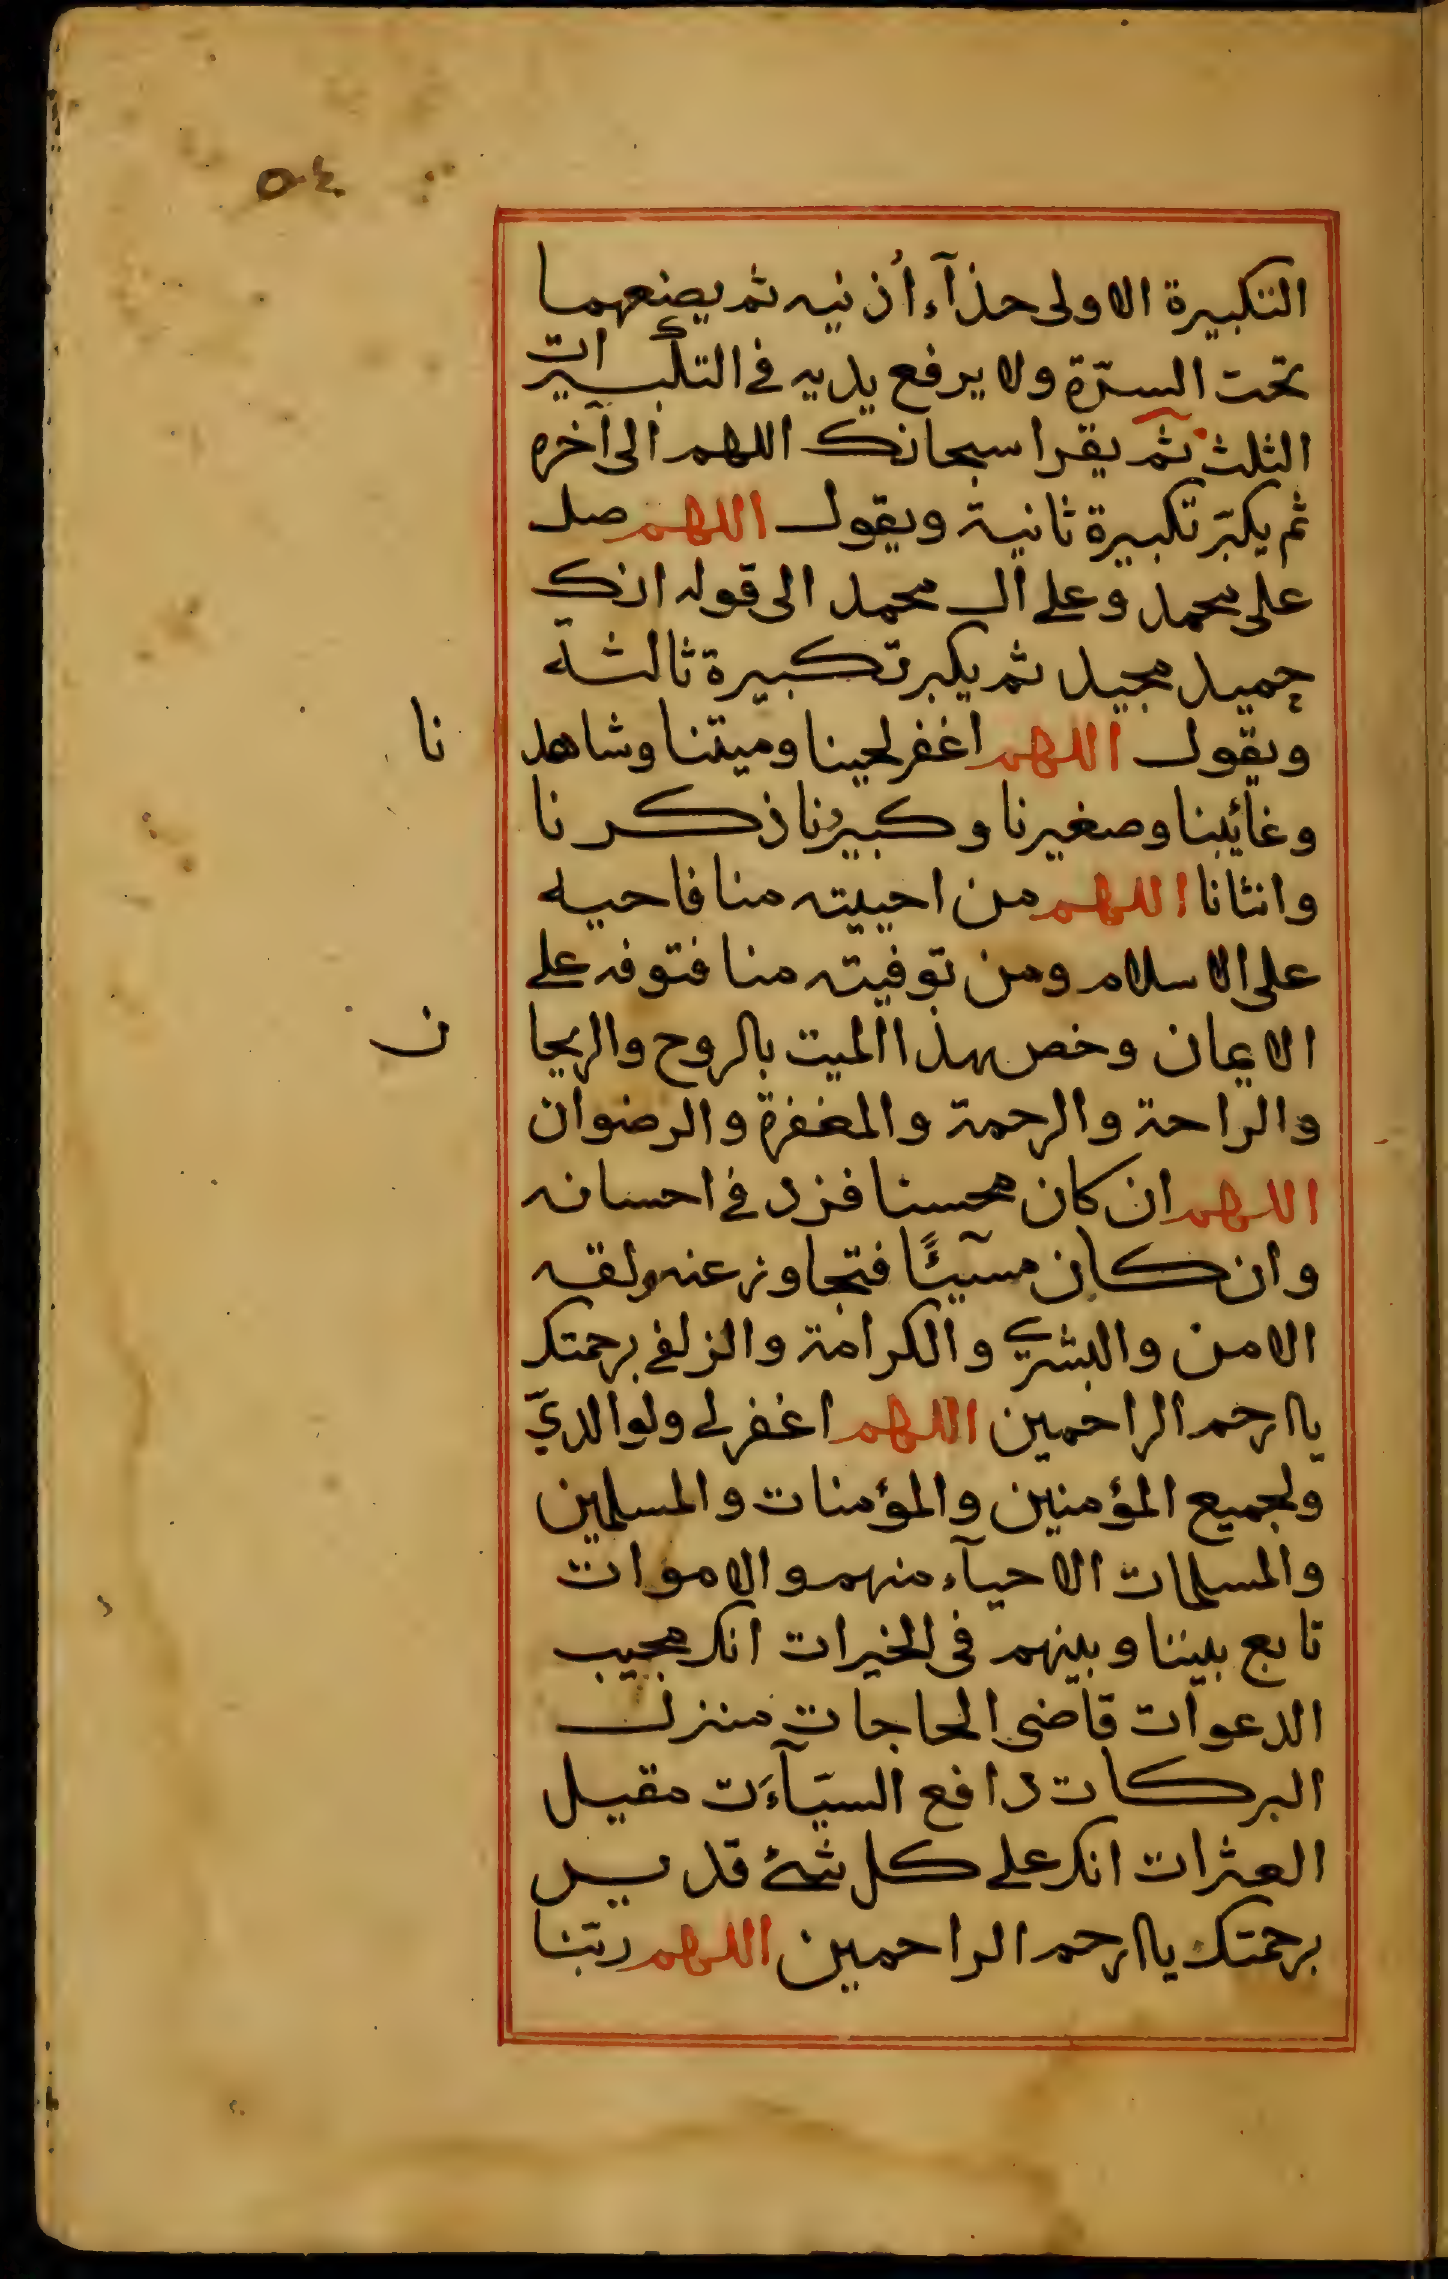 ٥٤
التكبيرة الاولى حذآء اُذنيه ثم يضعهما
تحت السرّة ولا يرفع يديه فى التكبيرات
الثلث ثم يقرا سبحانك اللهم الى آخره
ثم يكبّر تكبيرة ثانية ويقول اللهم صل
على محمد وعلى ال محمد الى قوله انك
حميد مجيد ثم يكبر تكبيرة ثالثة
ويقول اللهم اغفر لحينا وميتنا وشاهد نا
وغائبنا وصغيرنا وكبيرنا ذكرنا
وانثانا اللهم من احييته منا فاحيه
على الاسلام ومن توفيته منا فتوفه على
الايمان وخص هذا الميت بالروح والريحا ن
والراحة والرحمة والمغفرة والرضوان
اللهم ان كان محسنا فزد فى احسانه
وان كان مسيئًا فتجاوز عنه ولقه
الامن والبشرى والكرامة والزلفى برحمتك
يا ارحم الراحمين اللهم اغفر لى ولوالديّ
ولجميع المؤمنين والمؤمنات والمسلمين
والمسلمات الاحيآء منهم والاموات
تابع بيننا وبينهم فى الخيرات انك مجيب
الدعوات قاضى الحاجات منزل
البركات دافع السيّآءت مقيل
العثرات انك على كل شئ قدير
برحمتك يا ارحم الراحمين اللهم ربّنا